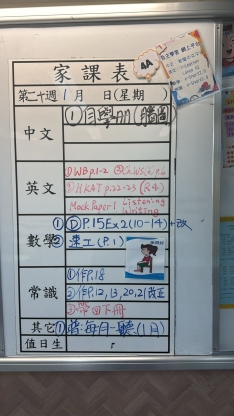 4A
家課表
第二十週 1月 日(星期 )
中文
①自學冊(
英文
①WB p.1-2
③HKAT p.22-23 (R4)
Mock Paper 1 Listening
Writing
數學
①D P.15 Ex2 (9-14) +改
②速工(P.1)
常識
①作P.18
②作P.12, 13, 20, 21 改正
③帶回下冊
其它
每月一聽(1月)
值日生